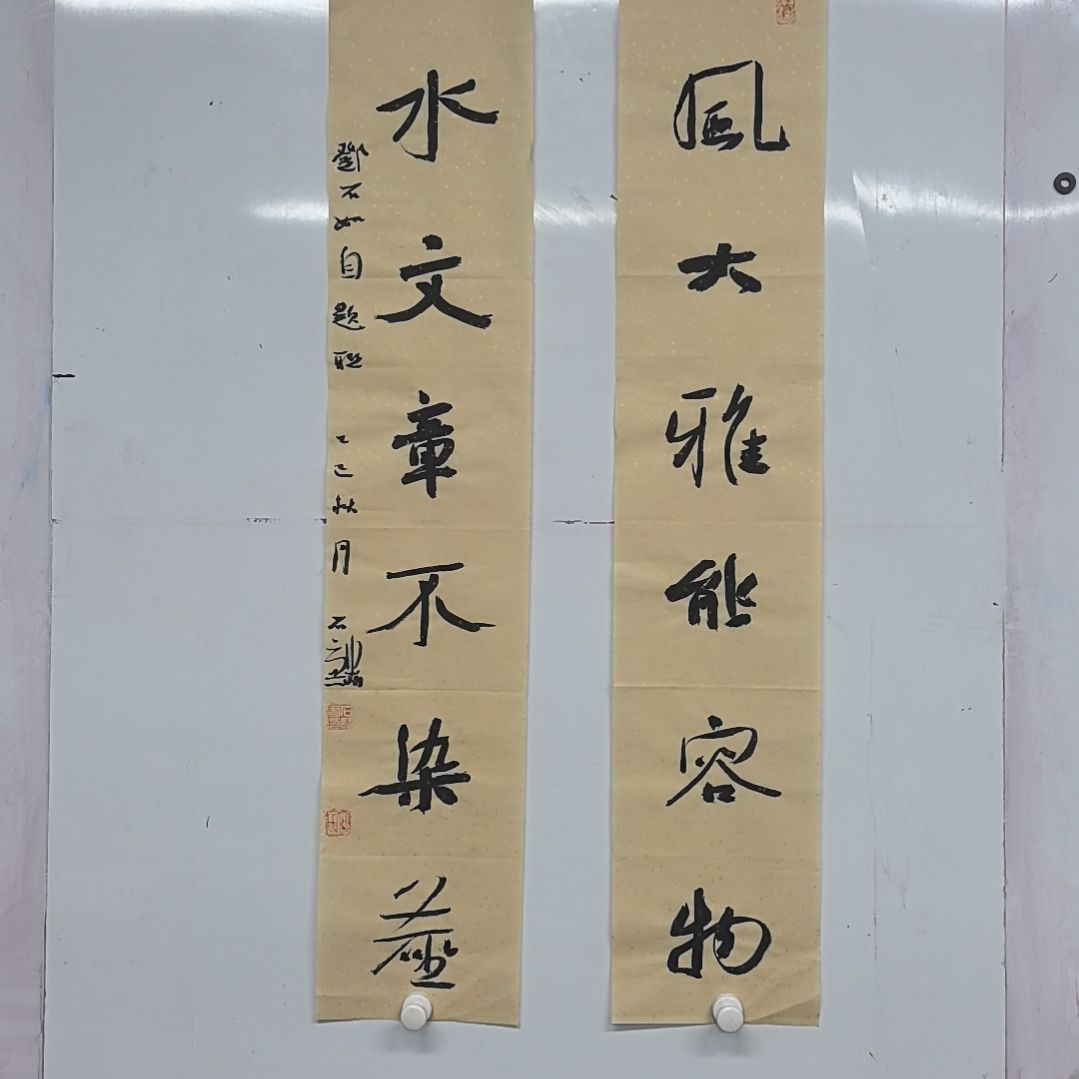 風大雅能容物
水文章不染塵
鄧石如自題聯 乙巳秋月 石